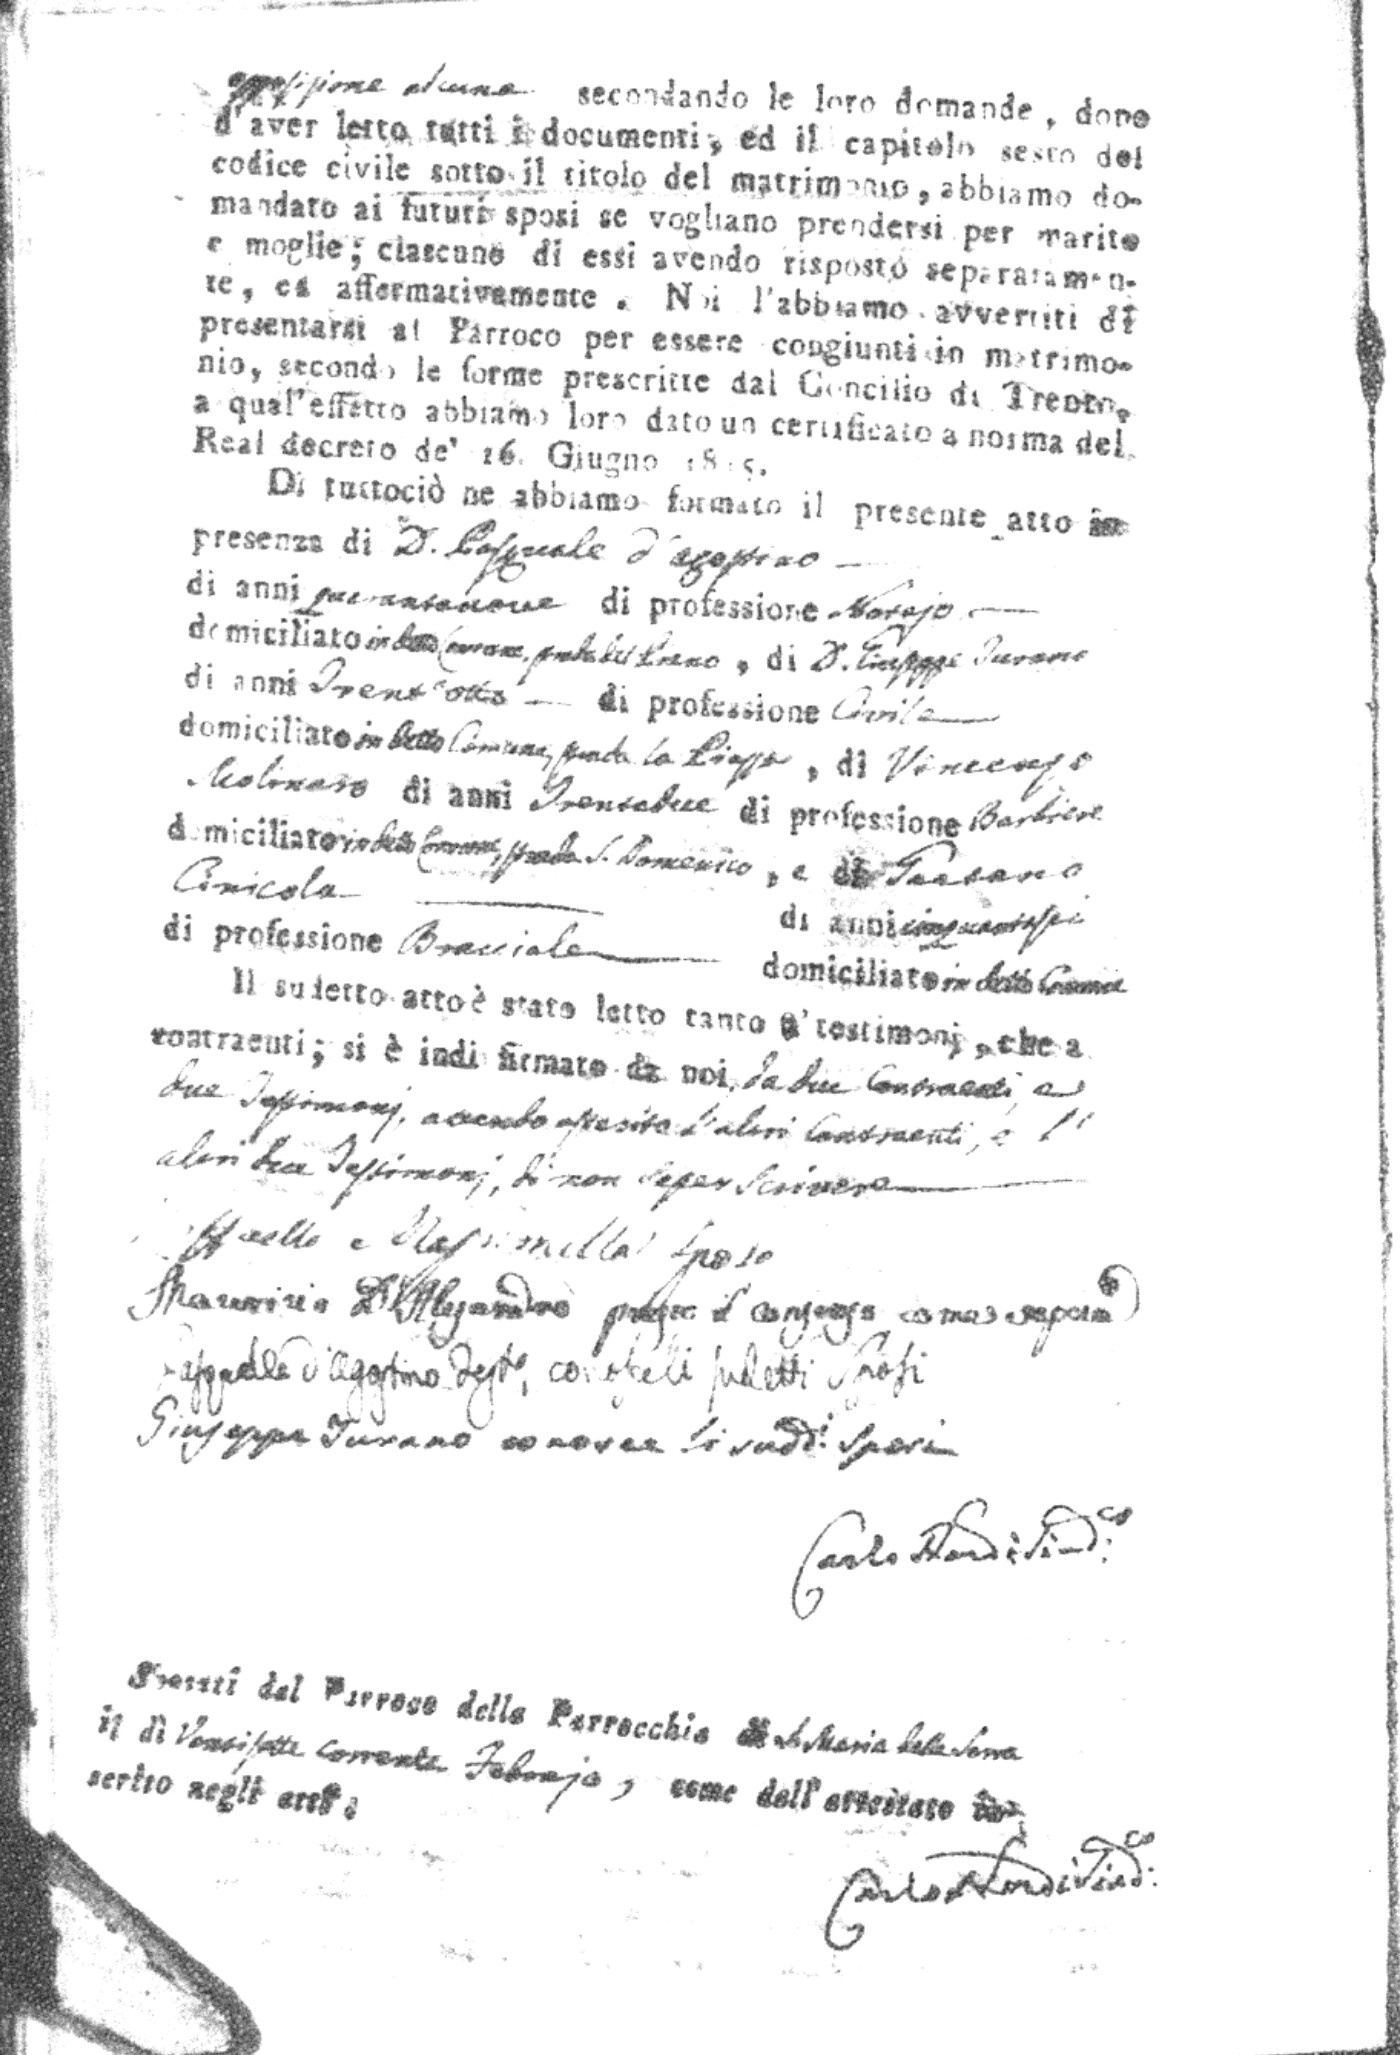 opposizione alcuna secondando le loro domande, dopo
d'aver letto tutti i documenti, ed il capitolo sesto del
codice civile sotto il titolo del matrimonio, abbiamo do-
mandato ai futuri sposi se vogliano prendersi per marito
e moglie; ciascuno di essi avendo risposto separatamen-
te, ed affermativamente. Noi l'abbiamo avvertiti di
presentarsi al Parroco per essere congiunti in matrimo-
nio, secondo le forme prescritte dal Concilio di Trento,
a qual'effetto abbiamo loro dato un certificato a norma del
Real decreto de' 16. Giugno 1815.
Di tuttociò ne abbiamo formato il presente atto in
presenza di D. Pasquale d'agostino
di anni quarantanove di professione Notajo
domiciliato in detto Comune, strada del , di D. Giuseppe Turano
di anni Trent'otto di professione Civile
domiciliato in detto Comune, strada la Piazza, di Vincenzo
Molinaro di anni Trentadue di professione Barbiere
domiciliato in detto Comune, strada S. Domenico, e di Gaetano
Cinicola di anni cinquantasei
di professione Bracciale domiciliato in detto Comune
Il sudetto atto è stato letto tanto a' testimonj, che a
contraenti; si è indi firmato da noi, da due Contraenti, e
due Testimonj, avendo asserito l'altri Contraenti, e l'
altri due Testimonj, di non saper scrivere
sposo
D'Alesandro presto il consenso come
d'agostino Test.o, conosce li sudetti Sposi
Giuseppe Turano conosce li sudd.i sposi
Carlo Sind.co
Avanti dal Parroco della Parrocchia di S. Maria della Serra
il dì Ventisette corrente Febrajo, come dall'attestato in-
serito negli atti.
Carlo Sind.co